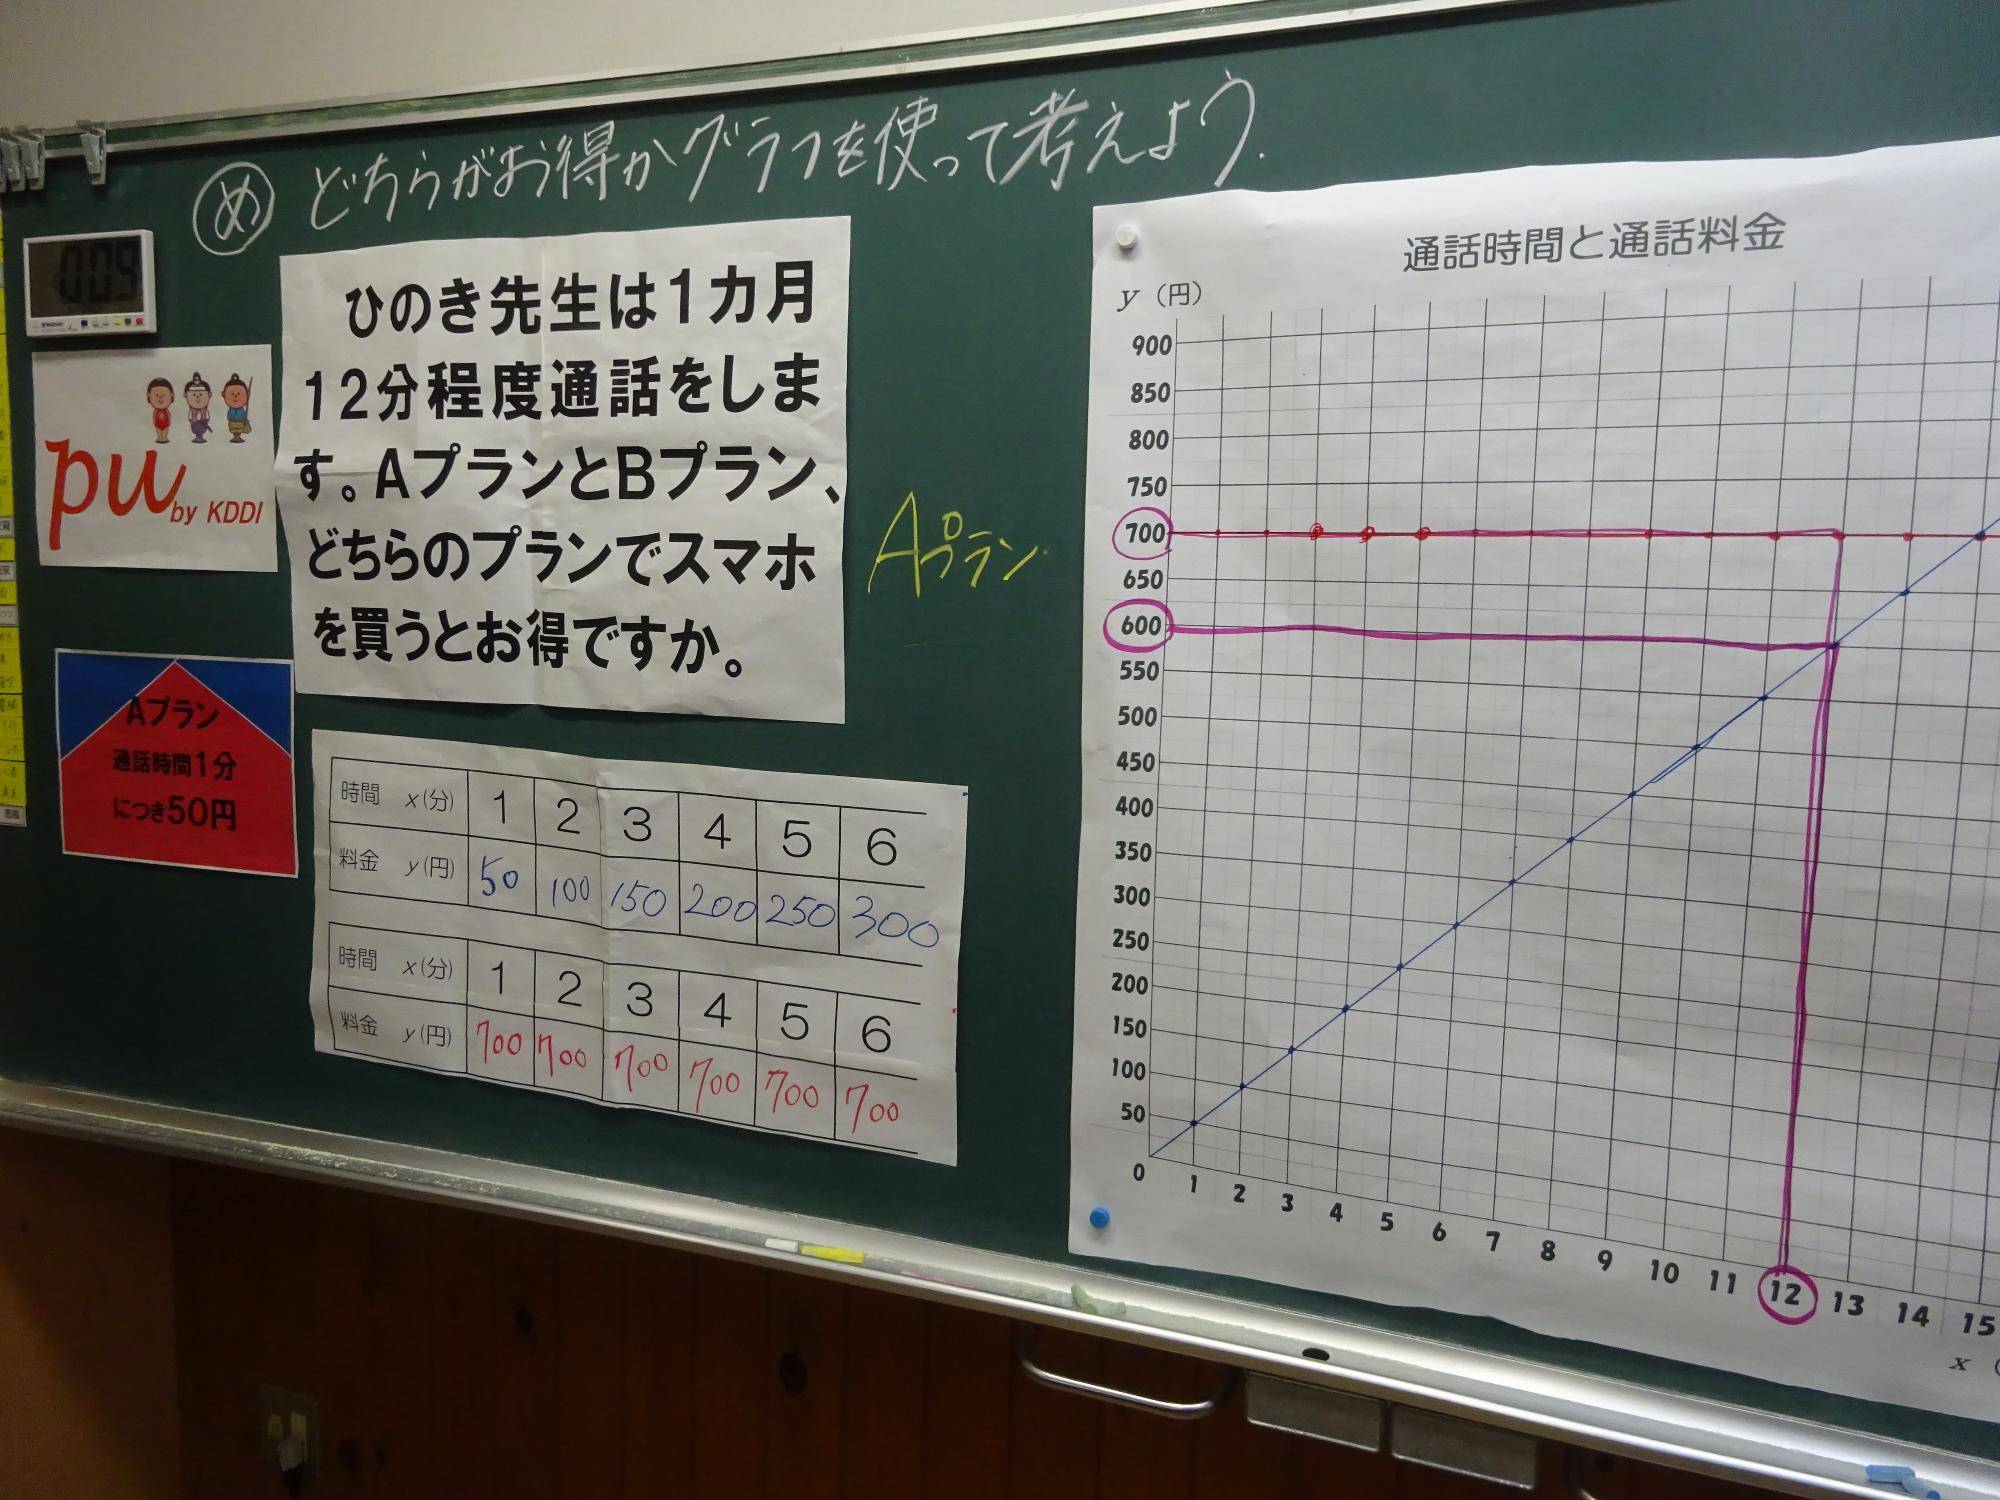 め どちらがお得かグラフを使って考えよう.
009
pu by KDDI
ひのき先生は1カ月
12分程度通話をしま
す。AプランとBプラン、
どちらのプランでスマホ
を買うとお得ですか。
Aプラン
Aプラン
通話時間1分
につき50円
時間 x(分) 1 2 3 4 5 6
料金 y(円) 50 100 150 200 250 300
時間 x(分) 1 2 3 4 5 6
料金 y(円) 700 700 700 700 700 700
通話時間と通話料金
y (円)
900
850
800
750
700
650
600
550
500
450
400
350
300
250
200
150
100
50
0 1 2 3 4 5 6 7 8 9 10 11 12 13 14 15
x (